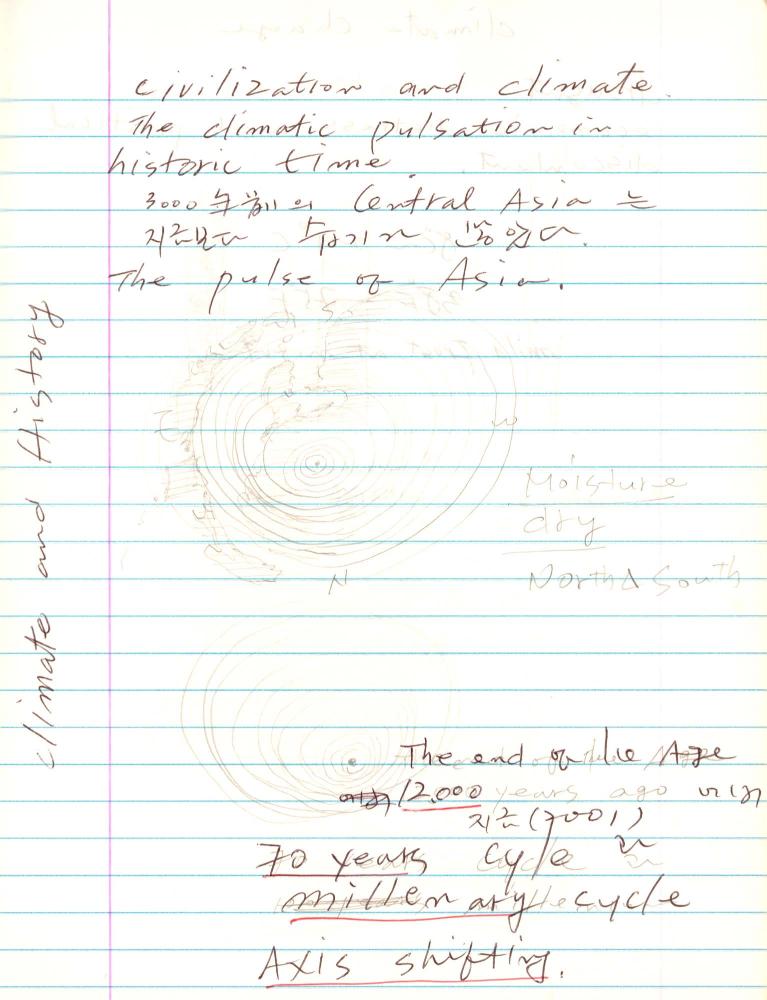 civilization and climate.
The climatic pulsation in
historic time.
3000年前의 Central Asia는
지금보다 습기가 많았다.
The pulse of Asia.
climate and History
E
W
N
Moisture
dry
North & South
The end of Ice Age
12.000 years ago
지금(2001)
70 years cycle
millenary cycle
Axis shifting.